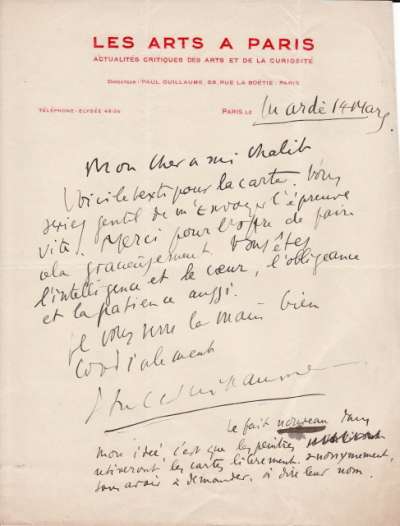 LES ARTS A PARIS
ACTUALITÉS CRITIQUES DES ARTS ET DE LA CURIOSITÉ
DIRECTEUR : PAUL GUILLAUME, 59, RUE LA BOÉTIE - PARIS
TÉLÉPHONE - ELYSÉE
PARIS LE Mardi 14 Mars
Mon cher ami Chalit
Voici le texte pour la carte. Vous
seriez gentil de m'envoyer l'épreuve
vite. Merci pour l'offre de faire
cela gracieusement. Vous êtes
l'intelligence et le cœur, l'obligeance
et la patience aussi.
Je vous serre la main bien
cordialement
Paul Guillaume
Le fait nouveau dans
mon idée, c'est que les peintres
retireront les cartes librement. anonymement,
sans avoir à demander, à dire leur nom.